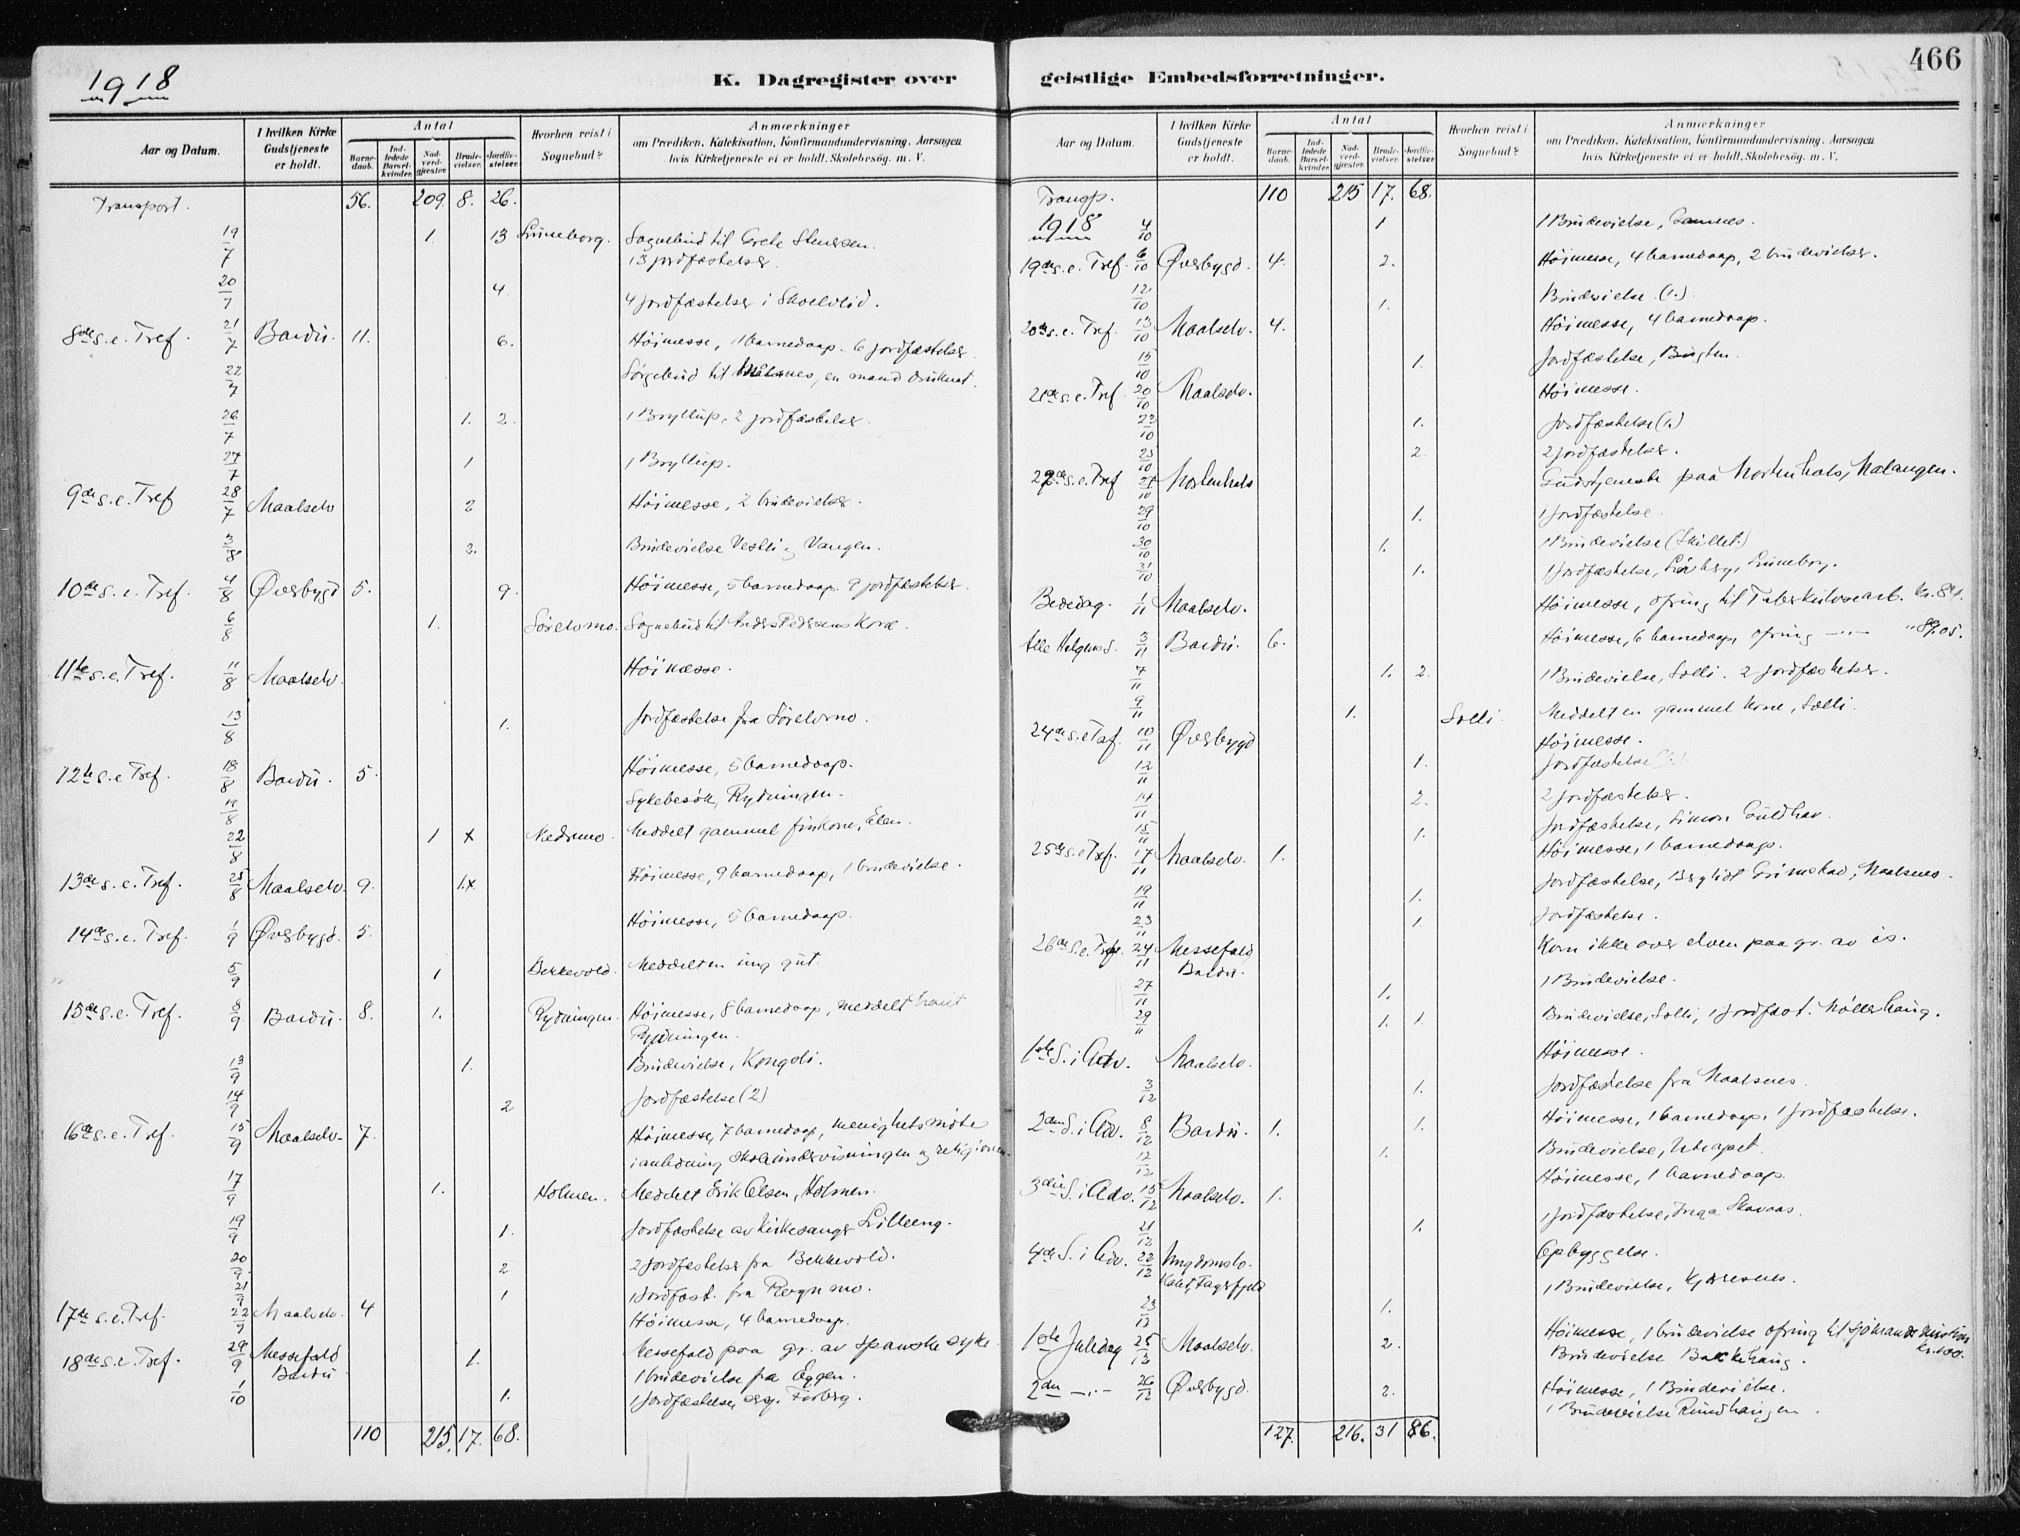 1918
K. Dagregister over
Aar og Datum.
I hvilken Kirke Gudstjeneste er holdt.
Antal
Barnedaab.
Indledede Barselkvinder.
Nadverdgjæster.
Brudevielser.
Jordfæstelser.
Hvorhen reist i Sognebud?
Anmærkninger
om Prædiken, Katekisation, Konfirmandundervisning, Aarsagen
hvis Kirketjeneste ei er holdt, Skolebesøg. m. V.
Transport. 56. 209. 8. 26.
19/7 1. 13 Luneborg. Sognebud til Grete
13 jordfæstelser.
20/7 4. 4 jordfæstelser i
8de S. e. Tref. 21/7 Bardu. 11. 6. Høimesse, 11 barnedaap. 6 jordfæstelser
22/7 Sørgebud til en mand druknet.
26/7 1. 2. 1 Bryllup, 2 jordfæstelser.
27/7 1 1 Bryllup.
9de s. e. Tref 28/7 Maalselv 2 Høimesse, 2 brudevielser.
3/8 2. Brudevielse Vestli og Vangen.
10de s. e. Tref. 4/8 Øverbygd 5. 9. Høimesse, 5 barnedaap. 9 jordfæstelser
6/8 1. Sørelvmo. Sognebud til Anders Pedersens Kone.
11te s. e. Tref. 11/8 Maalselv. Høimesse.
13/8 1. Jordfæstelse fra Sørelvmo.
12te s. e Tref. 18/8 Bardu. 5. Høimesse, 5 barnedaap.
19/8 Sykebesøk, Rydningen.
22/8 1 x Nedremo. Meddelt gammel finkone, Elen.
13de s. e. Tref. 25/8 Maalselv. 9. 1.x Høimesse, 9 barnedaap, 1 brudevielse.
14de s. e. Tref. 1/9 Øverbygd. 5. Høimesse, 5 barnedaap.
5/9 1 Bekkevold. Meddelt en ung gut.
15de s. e. Tref. 8/9 Bardu. 8. 1. Rydningen. Høimesse, 8 barnedaap, meddelt
Rydningen.
13/9 1. Brudevielse, Kongsli.
14/9 2 Jordfæstelse (2)
16de s. e. Tref. 15/9 Maalselv. 7. Høimesse, 7 barnedaap, menighetsmøte
i anledning skoleundervisningen og religionen.
17/9 1. Holmen. Meddelt Erik Olsen, Holmen.
19/9 1. Jordfæstelse av Kirkesanger Lilleeng.
20/9. 2 2 Jordfæstelser fra Bekkevold.
21/9 1 1 Jordfæst. fra Rognmo.
17de s. e. Tref. 22/9 Maalselv. 4 Høimesse, 4 barnedaap.
18de s. e Tref. 29/9 Messefald Bardu 1. Messefald paa gr. av spanske syke.
1 brudevielse fra Eggen.
1/10 1. 1 Jordfæstelse, Fosberg.
110 215. 17. 68.
466
geistlige Embedsforretninger.
Aar og Datum.
I hvilken Kirke Gudstjeneste er holdt.
Antal
Barnedaab.
Indledede Barselkvinder.
Nadverdgjæster.
Brudevielser.
Jordfæstelser.
Hvorhen reist i Sognebud?
Anmærkninger
om Prædiken, Katekisation, Konfirmandundervisning, Aarsagen
hvis Kirketjeneste ei er holdt, Skolebesøg. m. V.
Transp. 110 215 17. 68.
1918 4/10 1 1 Brudevielse,
19de s. e. Tref. 6/10 Øverbygd. 4. 2. Høimesse, 4 barnedaap, 2 brudevielser.
12/10 1. Brudevielse (1.)
20de s. e. Tref. 13/10 Maalselv. 4. Høimesse, 4 barnedaap.
15/10 1. Jordfæstelse, Bugten.
21de s. e. Tref 20/10 Maalselv. Høimesse.
22/10 1. Jordfæstelse (1.)
25/10 2. 2 jordfæstelser.
22de s. e. Tref 27/10 Mortenhals Gudstjeneste paa Mortenhals, Malangen.
29/10 1. 1 Jordfæstelse.
30/10 1. 1 Brudevielse
31/10 1. 1 Jordfæstelse, Luneborg.
Bededag. 1/11 Maalselv. Høimesse, ofring til Tuberkulosearb. Kr. 84.
Alle Helgens S. 3/11 Bardu. 6. Høimesse, 6 barnedaap, ofring —"— " 89.05.
7/11 1. 2. 1 Brudevielse, Solli. 2 jordfæstelser.
9/11 1. Solli. Meddelt en gammel Kone, Solli.
24de s. e Tref. 10/11 Øverbygd Høimesse.
12/11 1. Jordfæstelse
14/11 2. 2 Jordfæstelser.
15/11 1. Jordfæstelse, Simon Guldhav.
25de s. e Tref. 17/11 Maalselv. 1. Høimesse, 1 barnedaap.
19/11 1. Jordfæstelse, Bergliot Grimstad, Maalsnes.
23/11 1. Jordfæstelse.
26de s. e. Tref. 24/11 Messefald Bardu. Kom ikke over elven paa gr. av is.
27/11 1. 1 Brudevielse.
29/11 1. 1. Brudevielse, Solli, 1 jordfæst. Møllerhaug.
1ste S. i Adv. Maalselv. Høimesse.
3/12 1. Jordfæstelse fra Maalsnes.
2den S. i Adv. 8/12 Bardu. 1. 1. Høimesse, 1 barnedaap, 1 jordfæstelse.
12/12 1. Brudevielse,
3die S. i Adv. 15/12 Maalselv. 1. Høimesse, 1 barnedaap.
21/12 1. 1 Jordfæstelse, Inga Skavaas.
4de S. i Adv. 22/12 Ungdomslokalet, Fagerfjeld Opbyggelse.
23/12 1. 1 Brudevielse, Kjæresnes.
1ste Juledag 25/12 Maalselv. 2. Høimesse, 1 brudevielse ofring til Sjømandsmission Kr. 100.
Brudevielse Bakkehaug.
2den —"— 26/12 Øverbygd. 2. Høimesse, 1 Brudevielse.
1 Brudevielse Rundhaugen.
127. 216. 31 86.